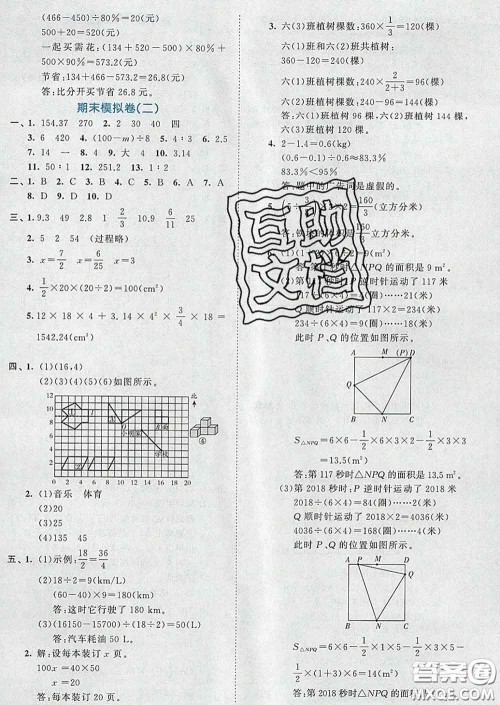 (466-450)÷(100%-20%)=20(元)
500+20=520(元)
一起买需花:(134+520-500)×80%+500
×90%=573.2(元)
节省:134+466-573.2=26.8(元)
答:比分开买节省 26.8 元。
期末模拟卷(二)
一、1. 154.37 270 2. 2 30 40 四
3. > < > > 4. (100-m)÷8 5. 4:3
7. 14 一 8. 4 9. 大 4 10. 3.14
11. 50:1 12. 251.2 13. 1:2
二、1. B 2. C 3. A 4. B 5. A 6. C 7. A
8. D 9. D 10. D
三、1. 9.3 49 2.8 1 2/3 10.9 6/11 25
2. 5 2 54 (过程略)
3. x=7/2 x=6/25 x=3
4. 1/2×20×(20÷2)=100(cm²)
5. 12×18×4+3.14×12²×3/4×18=
1542.24(cm²)
四、1. (1)(16,4)
(2)(3)(4)(5)(6)如图所示。
北
学校
④
2. (1)音乐 体育
(2)20
(3)45
3. 152 135 54
五、1. (1)示例:18/2=36/4
(2)18÷2=9(km/L)
答:这时它行驶了 180 km。
(3)(16150-15700)÷(18÷2)=50(L)
答:汽车耗油 50 L。
2. 解:设每本装订 x 页。
100x=40×50
x=20
答:每本装订 20 页。
3. 六(3)班植树棵数:360×1/3=120(棵)
六(1)班和六(2)班共植树:
360-120=240(棵)
六(1)班植树棵数:240×2/(2+3)=96(棵)
六(2)班植树棵数:240-96=144(棵)
答:六(1)班植树 96 棵,六(2)班植树 144 棵,
六(3)班植树 120 棵。
4. 2-1.4=0.6(kg)
(0.6-0.1)÷0.6≈83.3%
83.3%<85%
是虚假的。
(立方分米)
立方分米。
互助文档
△NPQ 的面积是 9 m²。
(2)第
运动了 117 米
(圈)……21(米)
时针运动了
234÷(6×4)=9(圈)……18(米)
此时 P、Q、N 的位置如图所示。
M (P) D
Q
B N C
S△NPQ=6×6-1/2×6×3-1/2×3×3-1/2×3×6
=13.5(m²)
答:第 117 秒时△NPQ 的面积是 13.5 m²。
(3)第 2018 秒时:P 逆时针运动了 2018 米
2018÷(6×4)=84(圈)……2(米)
Q 顺时针运动了 2018×2=4036(米)
4036÷(6×4)=168(圈)……4(米)
此时 P、Q、N 的位置如图所示。
P M D
Q
B N C
S△NPQ=6×6-1/2×5×1-1/2×3×5-
1/2×(1+3)×6=14(m²)
答:第 2018 秒时△NPQ 的面积
答案圈
MXQE.COM